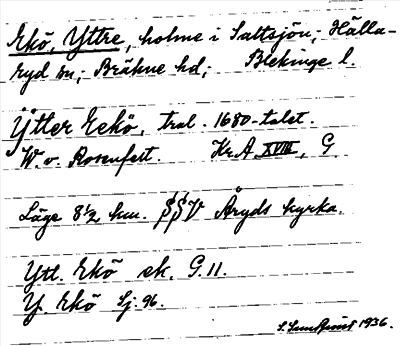 Ekö, Yttre, holme i Saltsjön; Hälla-
ryd sn; Bräkne hd; Blekinge l.
Ytter Eekö, trol. 1680-talet.
W. v. Rosenfelt. Kr. A. XVIII, G.
Läge 8 1/2 km. SSV Åryds kyrka.
Ytl. Ekö ek. G. 11.
Y. Ekö Sj. 96.
1936.